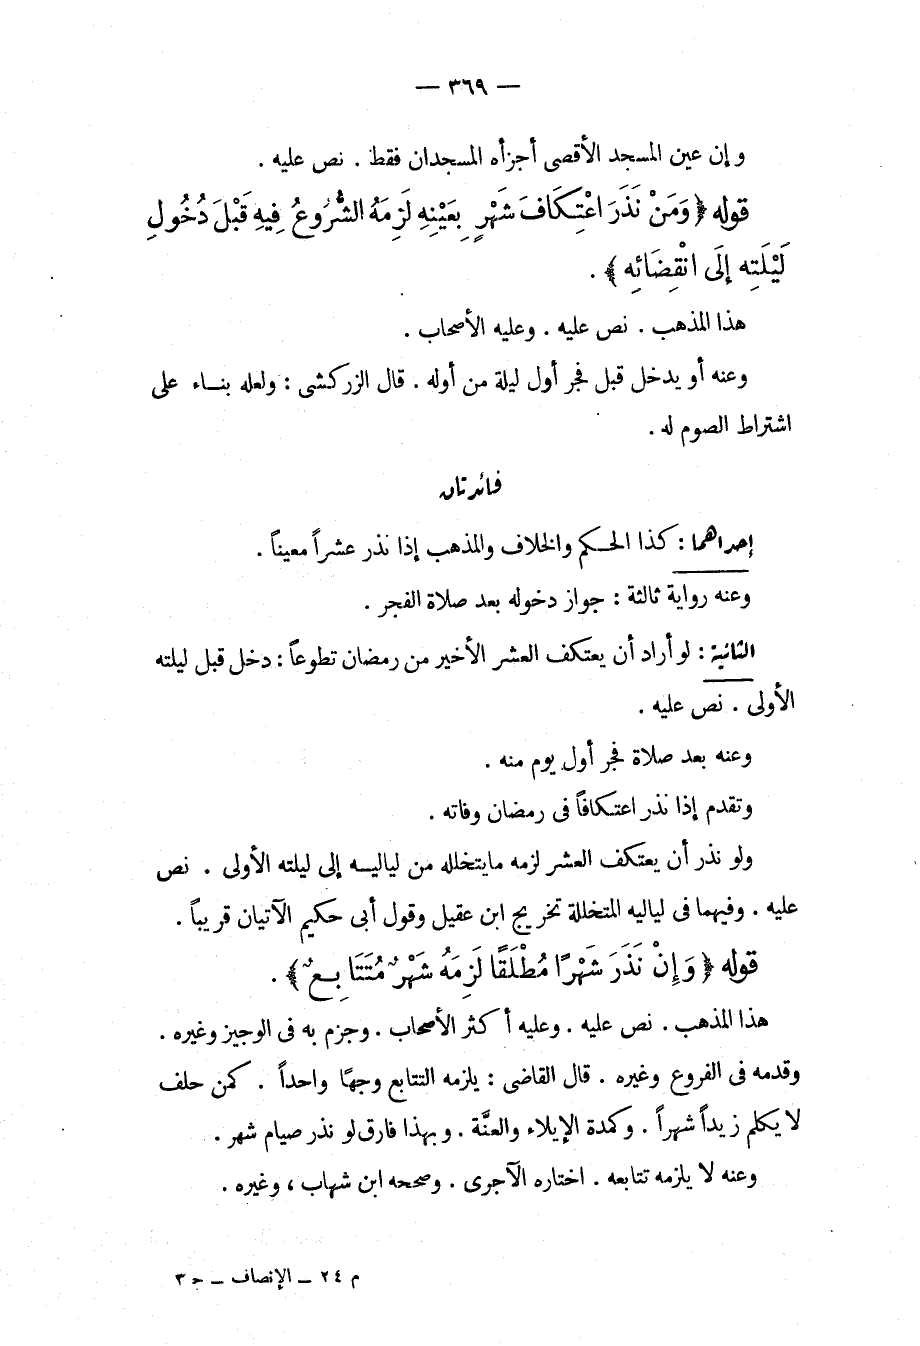 — ٣٦٩ —
وإن عين المسجد الأقصى أجزأه المسجدان فقط . نص عليه .
قوله ﴿ وَمَنْ نَذَرَ اعْتِكَافَ شَهْرٍ بِعَيْنِهِ لَزِمَهُ الشُّرُوعُ فِيهِ قَبْلَ دُخُولِ
لَيْلَتِهِ إِلَى انْقِضَائِهِ ﴾ .
هذا المذهب . نص عليه . وعليه الأصحاب .
وعنه أو يدخل قبل فجر أول ليلة من أوله . قال الزركشى : ولعله بناء على
اشتراط الصوم له .
فائدتان
إحداهما : كذا الحكم والخلاف والمذهب إذا نذر عشراً معيناً .
وعنه رواية ثالثة : جواز دخوله بعد صلاة الفجر .
الثانية : لو أراد أن يعتكف العشر الأخير من رمضان تطوعاً : دخل قبل ليلته
الأولى . نص عليه .
وعنه بعد صلاة فجر أول يوم منه .
وتقدم إذا نذر اعتكافاً فى رمضان وفاته .
ولو نذر أن يعتكف العشر لزمه مايتخلله من لياليه إلى ليلته الأولى . نص
عليه . وفيهما فى لياليه المتخللة تخريج ابن عقيل وقول أبى حكيم الآتيان قريباً .
قوله ﴿ وَإِنْ نَذَرَ شَهْرًا مُطْلَقًا لَزِمَهُ شَهْرٌ مُتَتَابِعٌ ﴾ .
هذا المذهب . نص عليه . وعليه أكثر الأصحاب . وجزم به فى الوجيز وغيره .
وقدمه فى الفروع وغيره . قال القاضى : يلزمه التتابع وجهًا واحداً . كمن حلف
لا يكلم زيداً شهراً . وكمدة الإيلاء والعنَّة . وبهذا فارق لو نذر صيام شهر .
وعنه لا يلزمه تتابعه . اختاره الآجرى . وصححه ابن شهاب ، وغيره .
م ٢٤ ــ الإنصاف ــ ج ٣